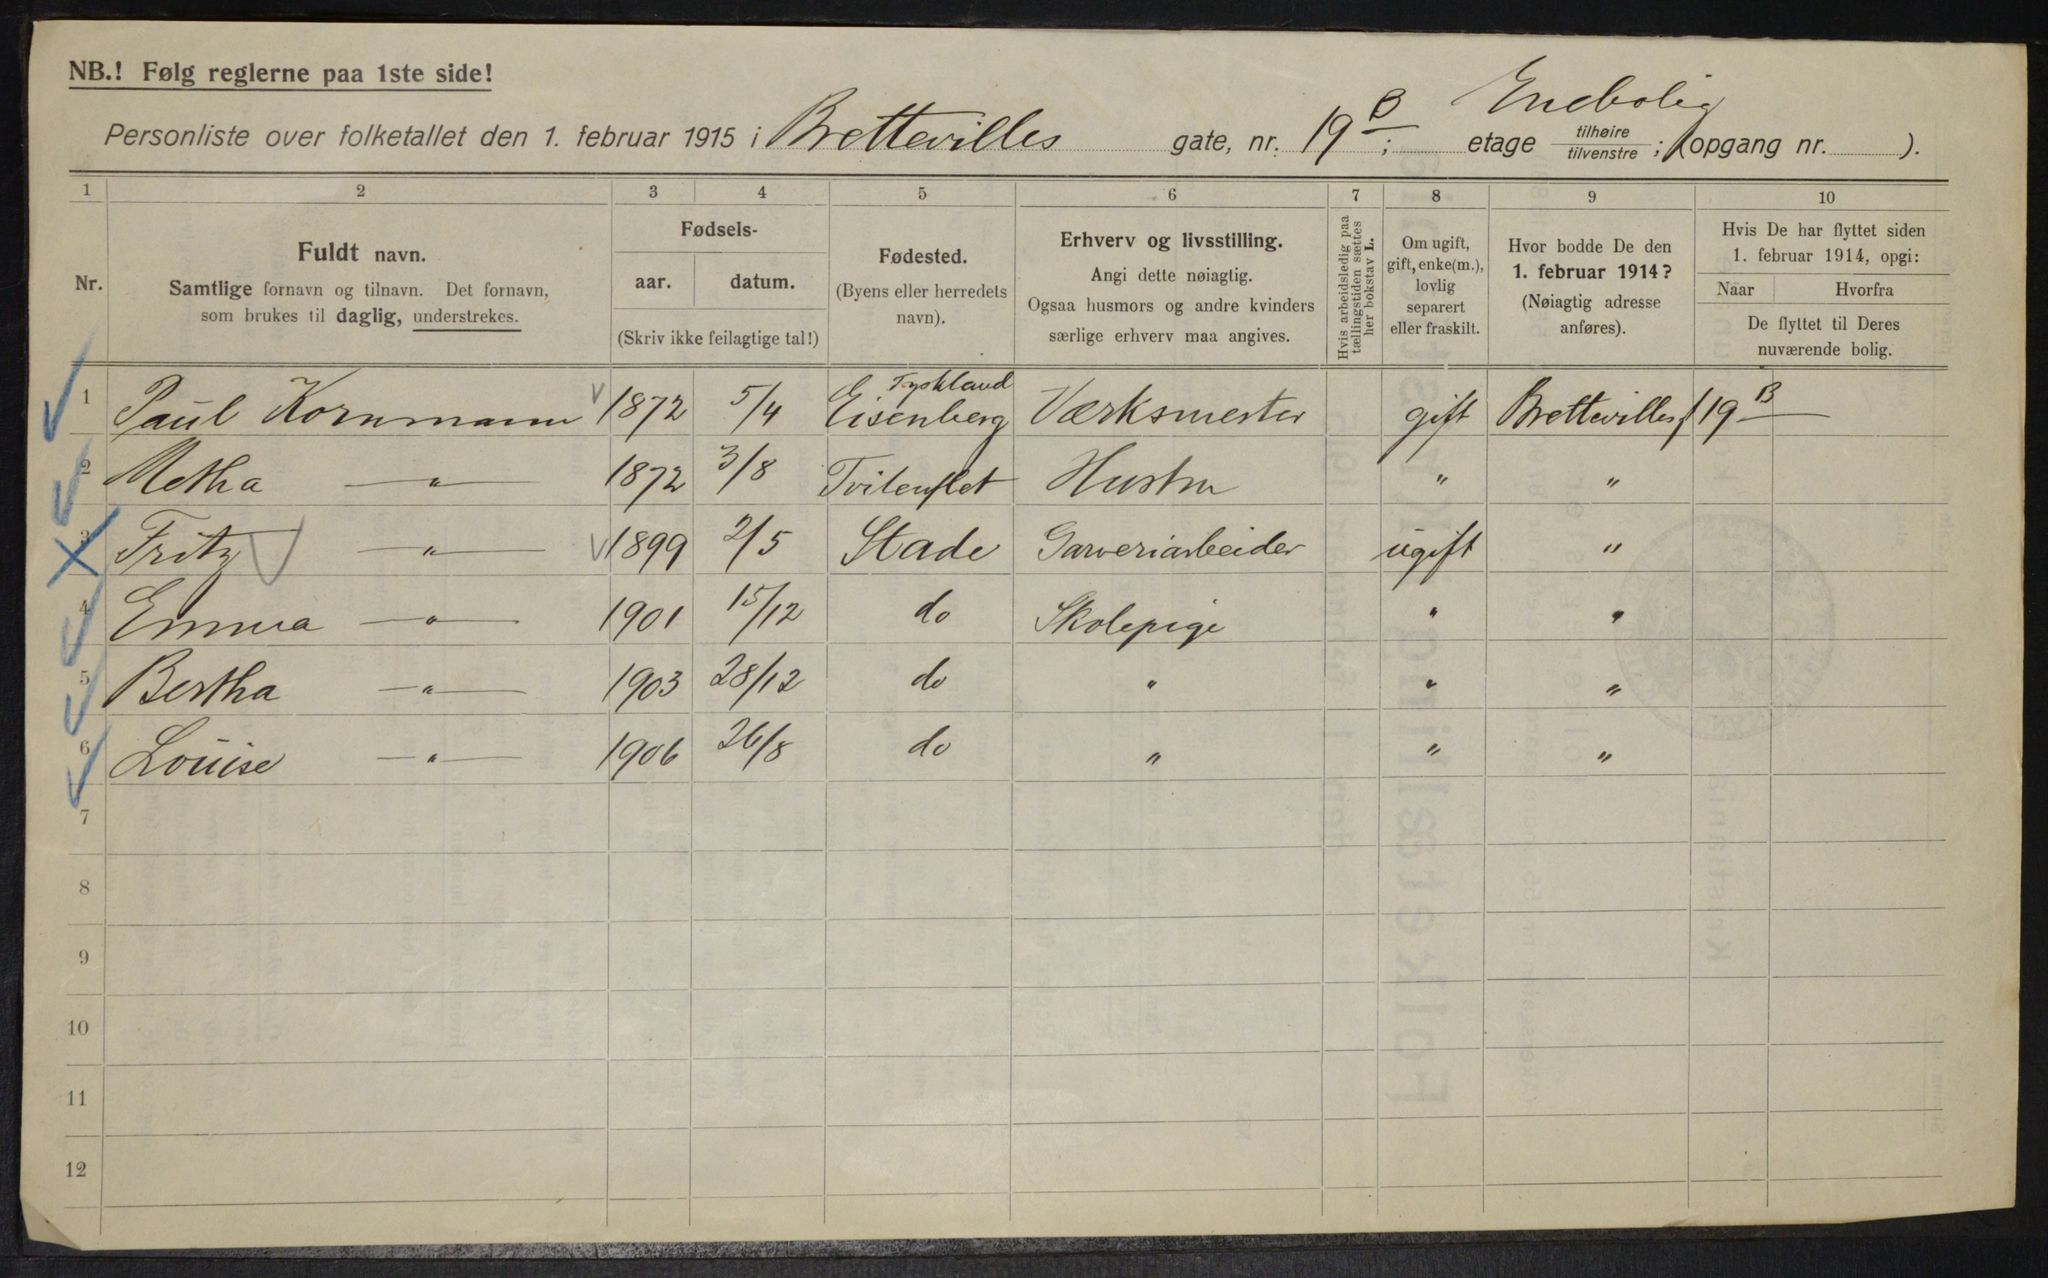 NB.! Følg reglerne paa 1ste side!
Enebolig
Personliste over folketallet den 1. februar 1915 i Brettevilles gate, nr. 19 B; etage tilhøire tilvenstre; (opgang nr. ).
1 2 3 4 5 6 7 8 9 10
Nr.
Fuldt navn.
Samtlige fornavn og tilnavn. Det fornavn,
som brukes til daglig, understrekes.
Fødsels-
aar. datum.
(Skriv ikke feilagtige tal!)
Fødested.
(Byens eller herredets
navn).
Erhverv og livsstilling.
Angi dette nøiagtig.
Ogsaa husmors og andre kvinders
særlige erhverv maa angives.
Hvis arbeidsledig paa
tællingstiden sættes
her bokstav L.
Om ugift,
gift, enke(m.),
lovlig
separert
eller fraskilt.
Hvor bodde De den
1. februar 1914?
(Nøiagtig adresse
anføres).
Hvis De har flyttet siden
1. februar 1914, opgi:
Naar Hvorfra
De flyttet til Deres
nuværende bolig.
Tyskland
1 Paul Kornmann 1872 5/4 Eisenberg Værksmester gift Brettevilles 19 B
2 Metha — " — 1872 3/8 Hustru " "
3 Fritz — " — 1899 2/5 Stade Garveriarbeider ugift "
4 Emma — " — 1901 15/12 do Skolepige " "
5 Bertha — " — 1903 28/12 do " " "
6 Louise — " — 1906 26/8 do " " "
7
8
9
10
11
12